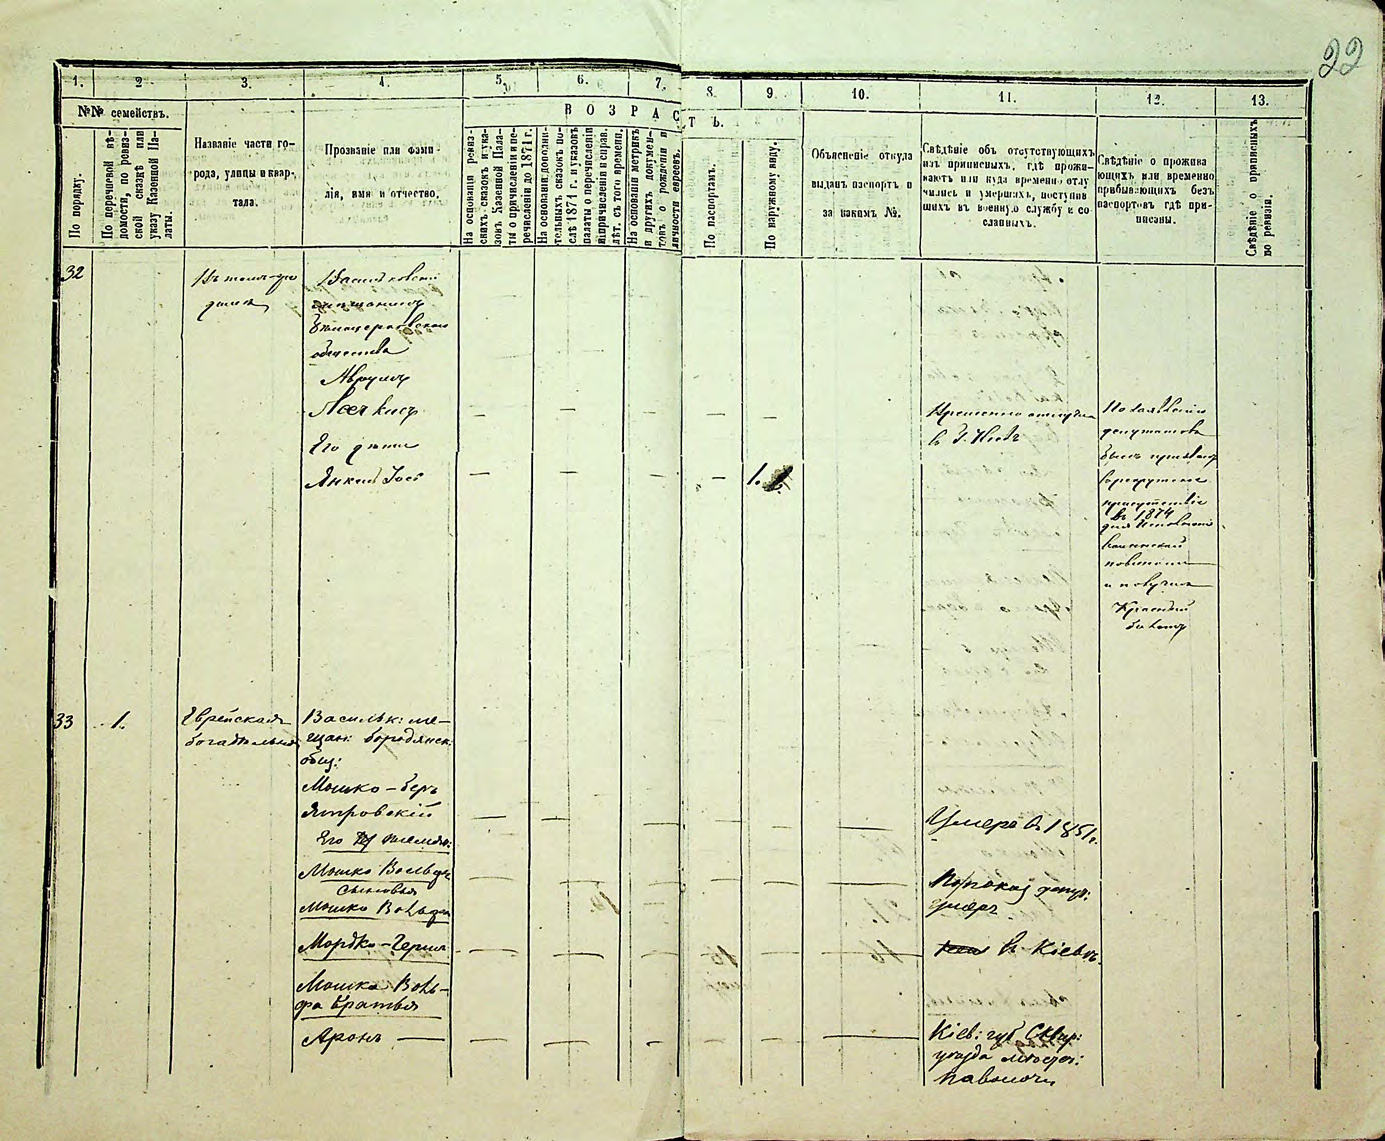 22
1.
2
3.
4.
5.
6.
7.
8.
9.
10.
11.
12.
13.
№№ семействъ.
ВОЗРАСТЪ.
По порядку.
По перечневой вѣ-
домости, по ревиз-
ской сказкѣ или
указу Казенной Па-
латы.
Названіе части го-
рода, улицы и квар-
тала.
Прозваніе или фами-
лія, имя и отчество.
На основаніи ревиз-
скихъ сказокъ и ука-
зокъ Казенной Пала-
ты о причисленіи и пе-
речисленіи до 1871 г.
На основаніи дополни-
тельныхъ сказокъ по-
слѣ 1871 г. и указовъ
палаты о перечисленіи
и причисленіи и справ.
лѣт. съ того времени.
На основаніи метрикъ
и другихъ докумен-
товъ о рожденіи и
личности евреевъ.
По паспортамъ.
По наружному виду.
Объясненіе откуда
выданъ паспортъ и
за какимъ №.
Свѣдѣніе объ отсутствующихъ
изъ приписныхъ, гдѣ прожи-
ваютъ или куда временно отлу
чились и умершихъ, поступив
шихъ въ военную службу и со
сланныхъ.
Свѣдѣніе о прожива
ющихъ или временно
прибывающихъ безъ
паспортовъ гдѣ при-
писаны.
Свѣдѣніе о приписныхъ
по ревизіи.
32
Въ томъ-же
домѣ
Васильковскій
мѣщанинъ
общества
Аврумъ
Его дѣти
Янкель Іось
1.
Временно отлуч.
в г. Кіевъ
По заявленію
депутатовъ
былъ
присутствіе
въ 1874
воинской
повинности
и получилъ
Красный
билетъ
33
1.
Еврейская
богадѣльня
Васильк: мѣ-
щан: бородянск:
общ:
Мошко-беръ
Ятровскій
Его племян:
Мошко Вольфъ
сыновья
Мошко Вольфа
Мордко-Герш
Мошка Воль-
фа братья
Аронъ
Умеръ въ 1851 г.
По показ. депут:
умеръ
въ Кіевѣ.
Кіев: губ Сквир:
уѣзда мѣстеч:
Паволочи